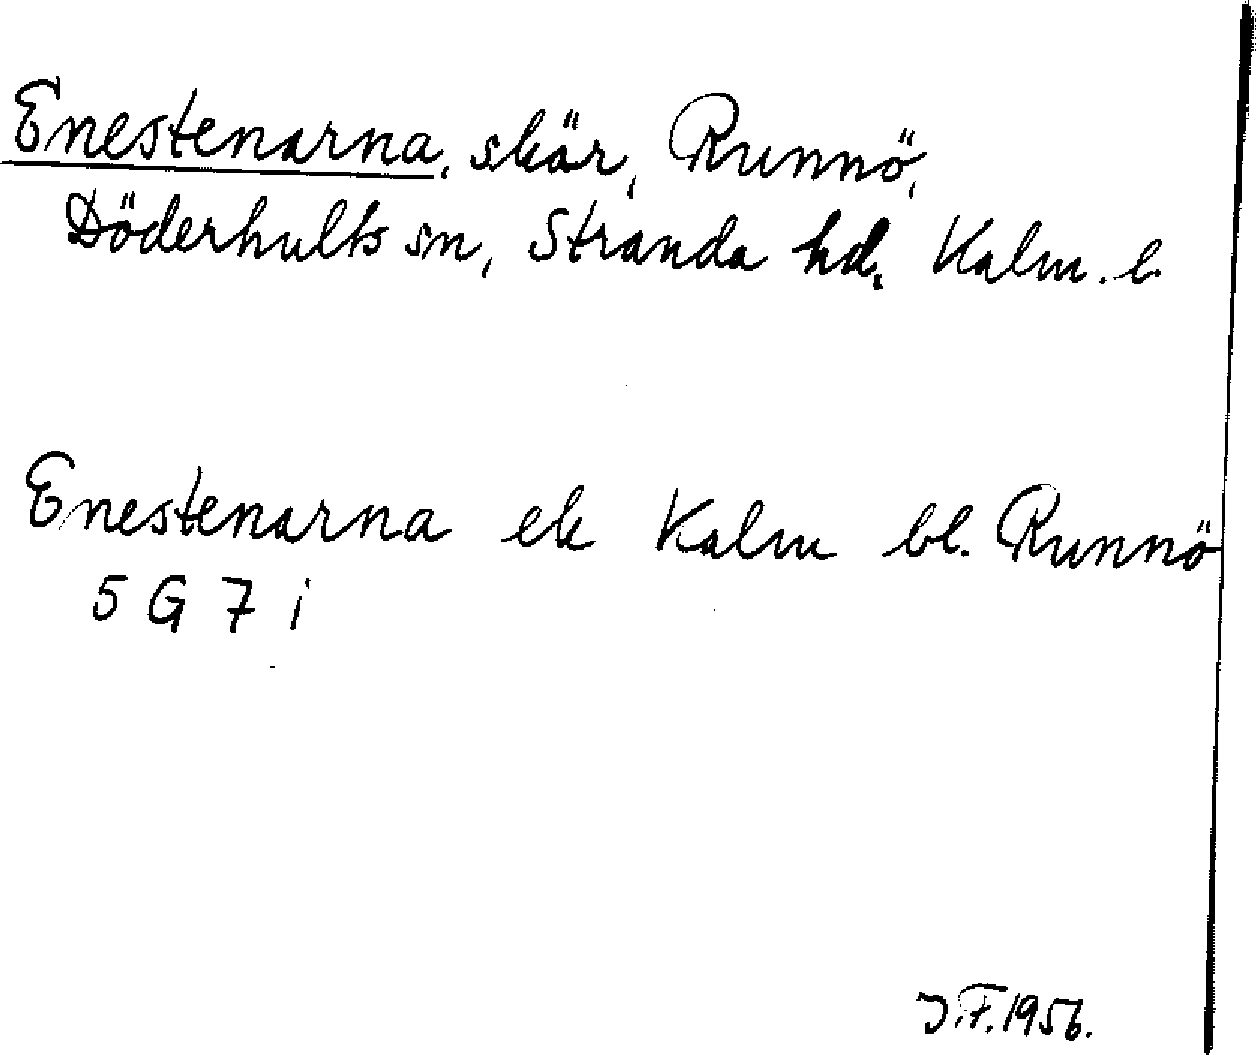 Enestenarna, skär, Runnö,
Döderhults sn, Stranda hd, Kalm. l.
Enestenarna ek Kalm bl. Runnö
5 G 7 i
J.F. 1956.